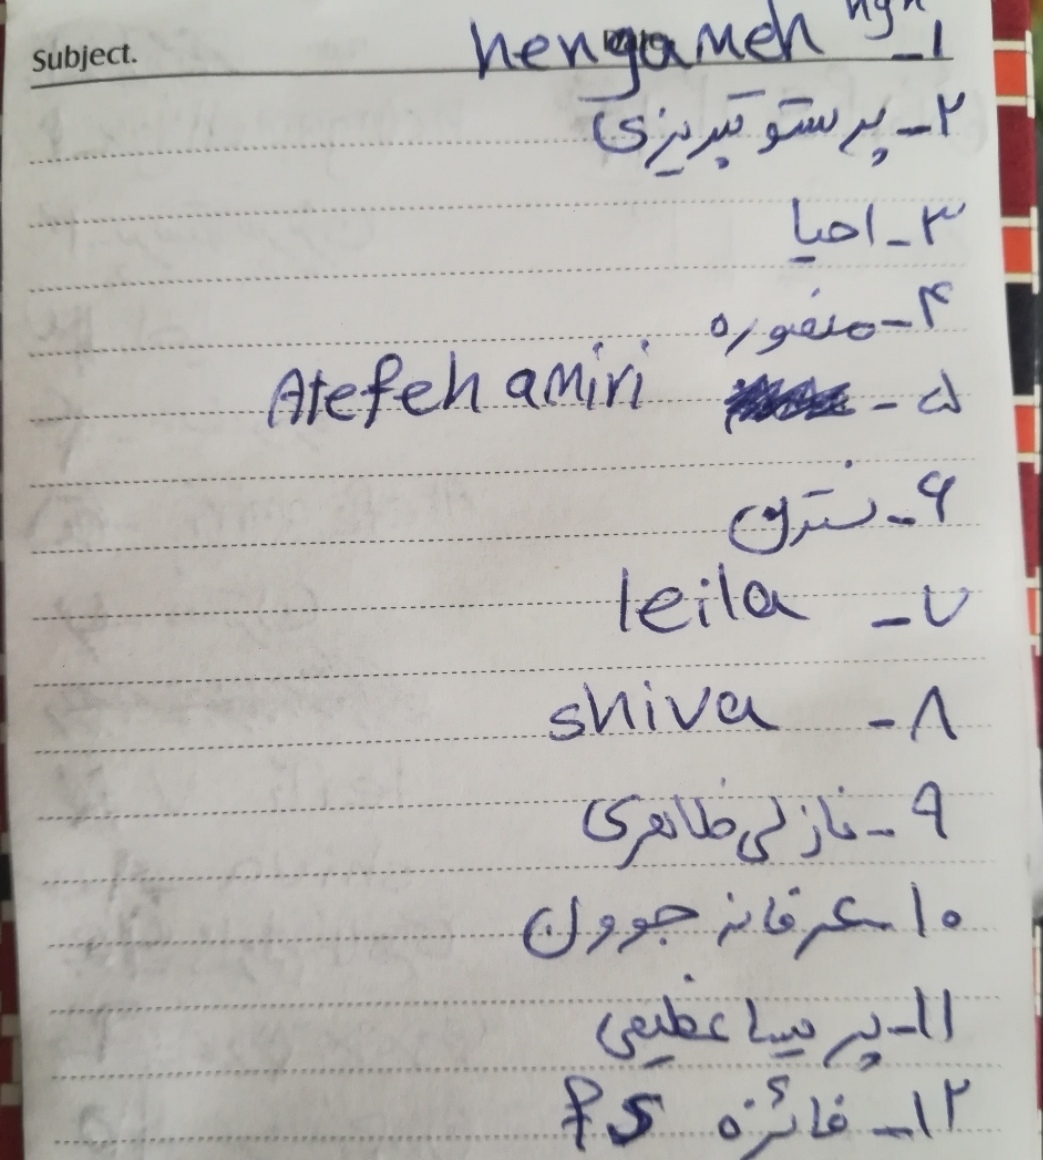 Subject.
۱_ hengameh hgh
۲_ پرستو تبریزی
۳_ احیا
۴_ منصوره
۵_ Atefeh amiri
۶_ نسترن
۷_ leila
۸_ shiva
۹_ نازلی طاهری
۱۰_ عرفانه جووون
۱۱_ پریسا عظیمی
۱۲_ فائزه Fs